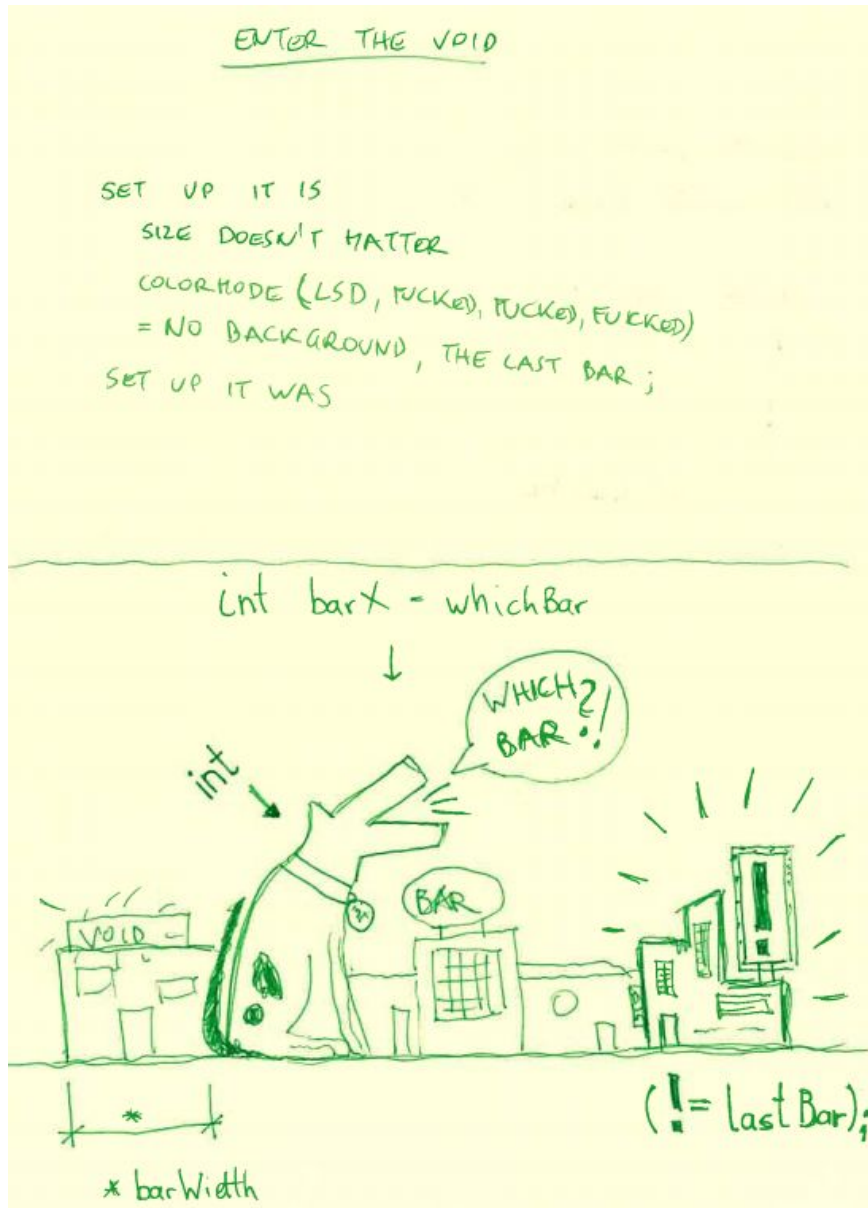 ENTER THE VOID
SET UP IT IS
SIZE DOESN'T MATTER
COLORMODE (LSD, FUCKED, FUCKED, FUCKED)
= NO BACKGROUND, THE LAST BAR;
SET UP IT WAS
int barX = whichBar
↓
WHICH?
BAR?!
int
BAR
VOID
!
(!= lastBar);
*
* barWidth